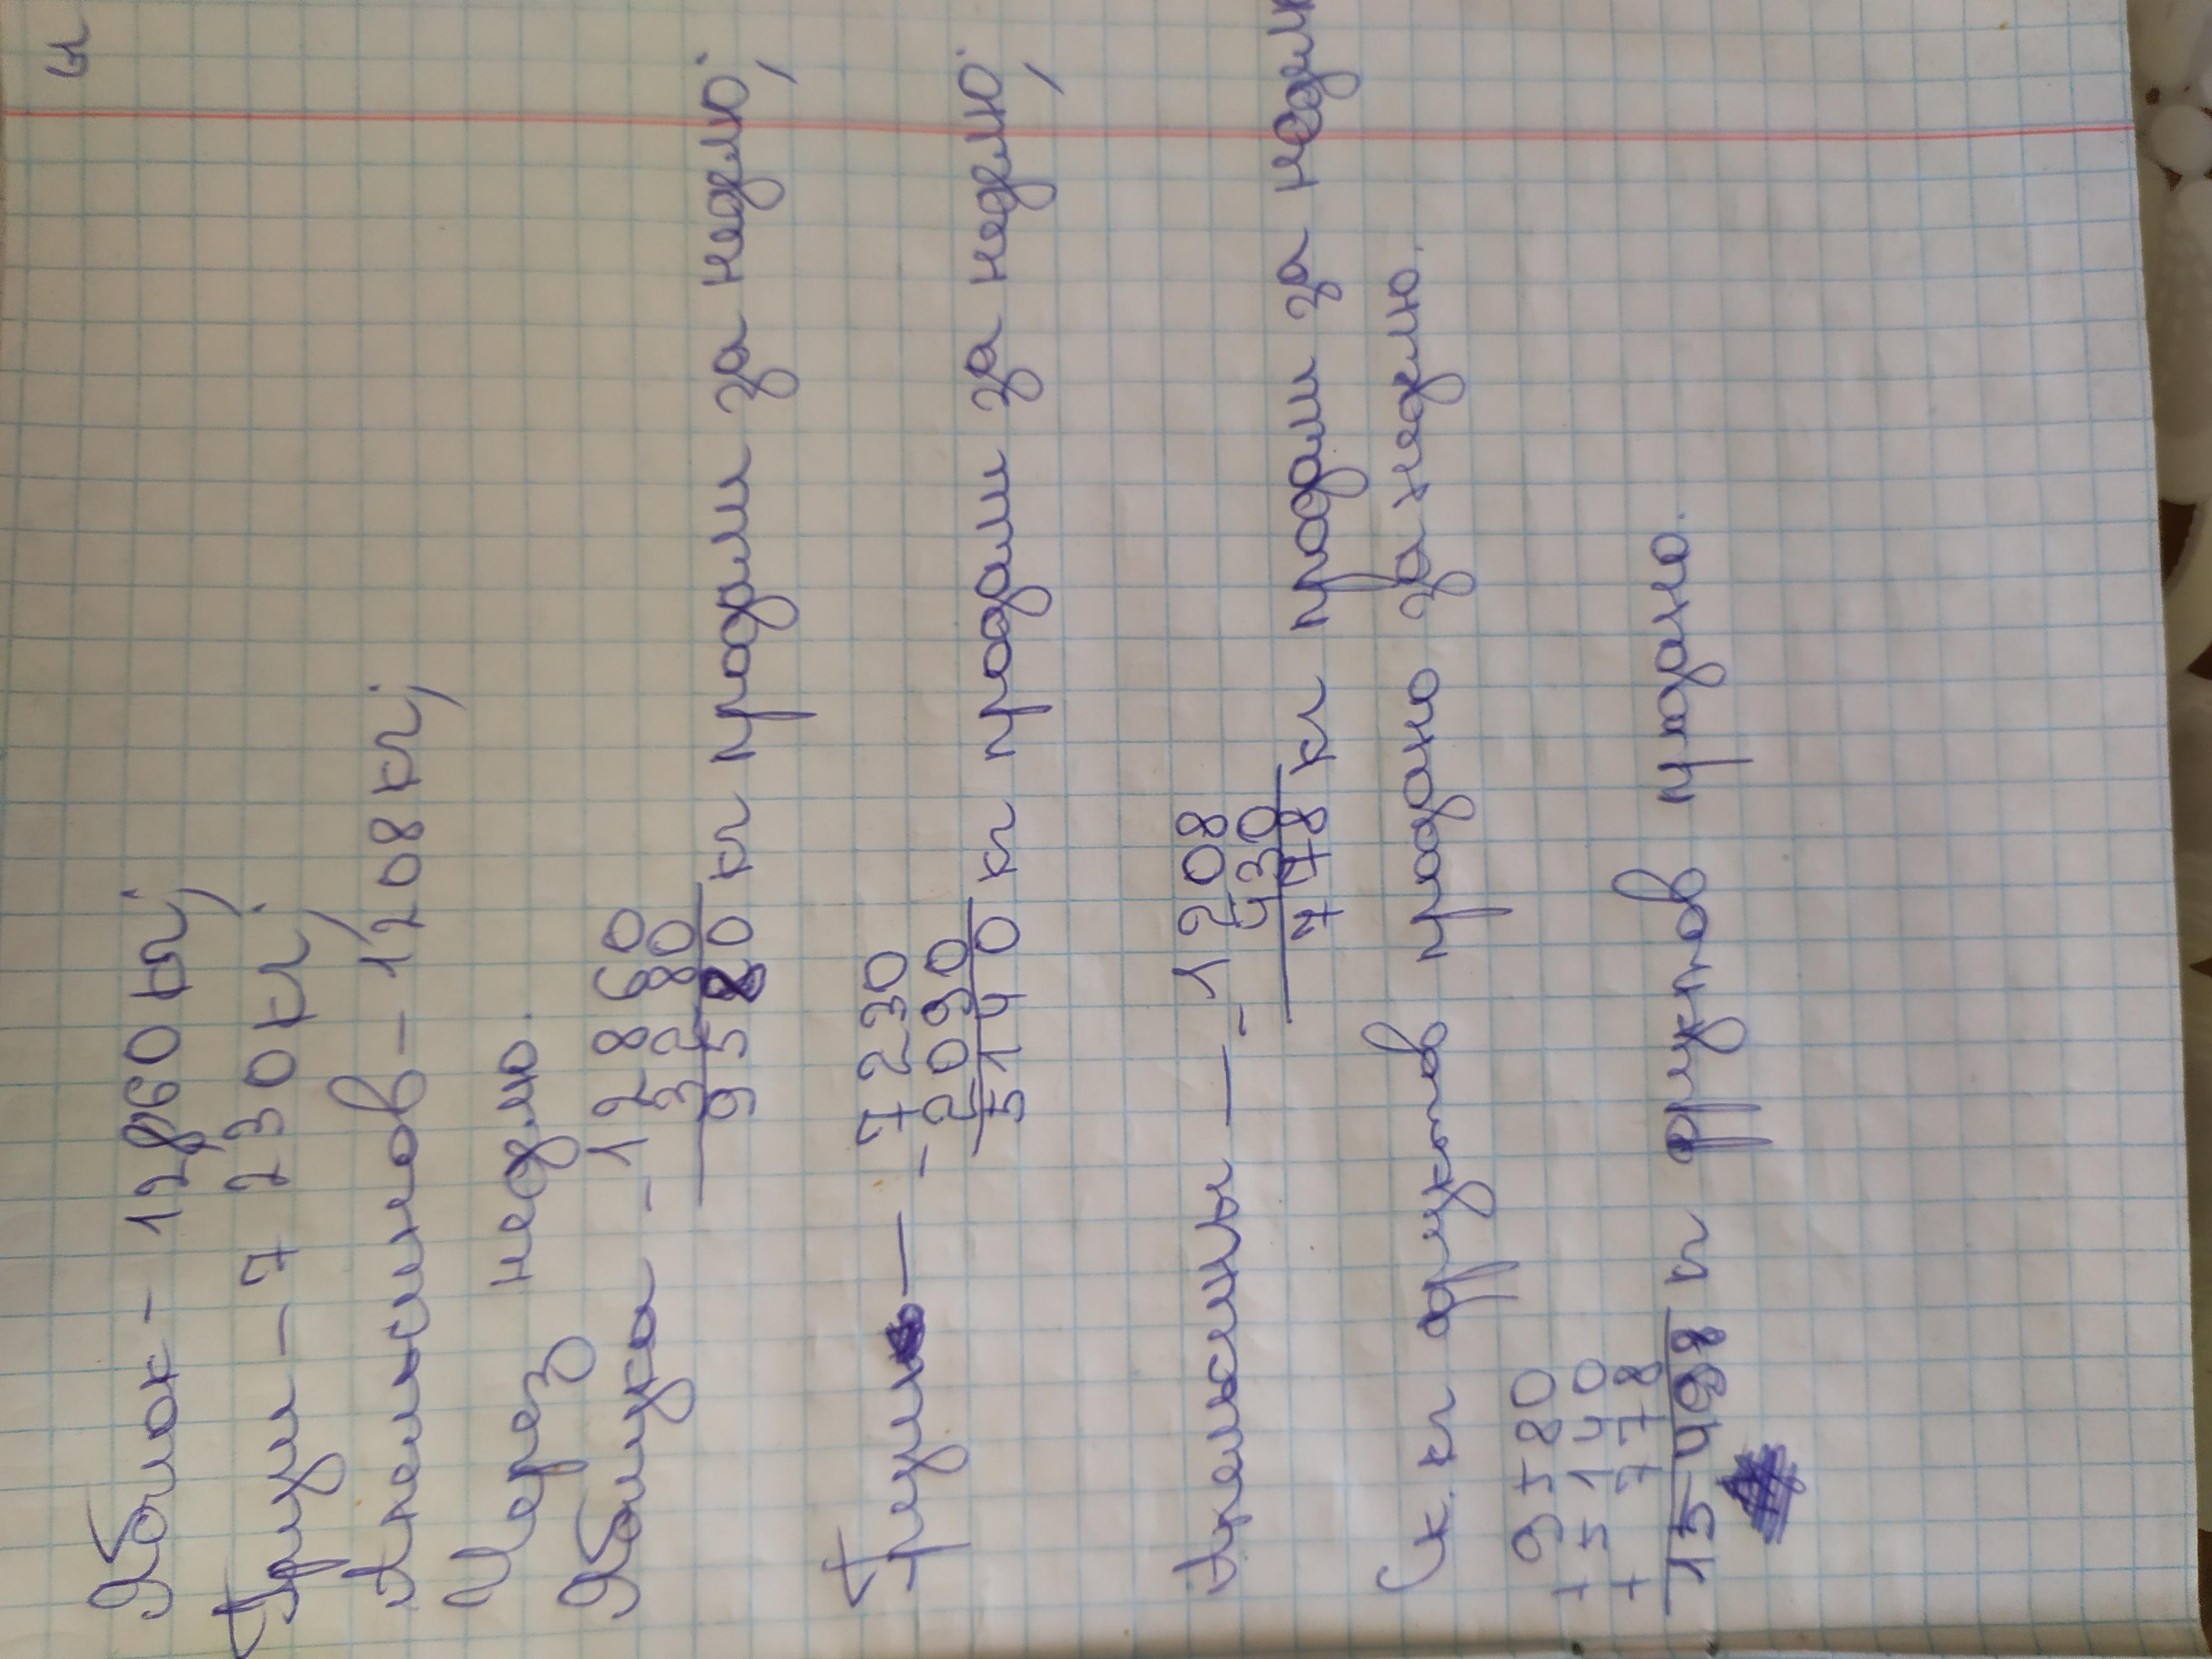 Яблок - 12860 кг;
Груш - 7 230 кг;
Апельсинов - 1208 кг;
Через неделю.
Яблука - 12860
3280
9580 кг продали за неделю;
Груш — 7230
- 2090
5140 кг продали за неделю;
Апельсины — - 1208
430
778 кг продали за недел
Ск. кг фруктов продано за неделю.
9580
+ 5140
+ 778
15498 кг фруктов продано.